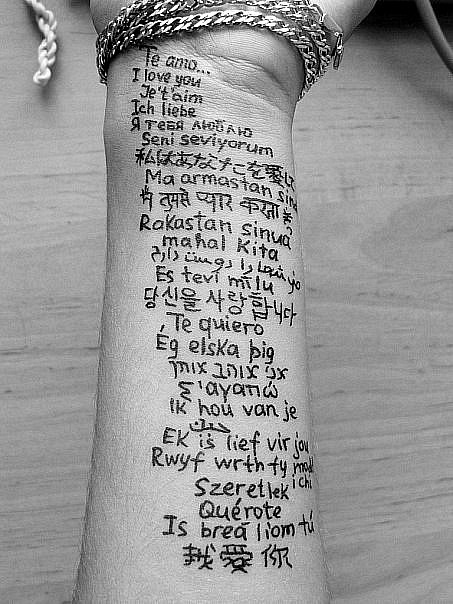 Te amo...
I love you
Je't'aim
Ich liebe
Я тебя люблю
Seni seviyorum
私はあなたを愛し
Ma armastan sind
मैं तुमसे प्यार करता हूँ
Rakastan sinua
mahal Kita
من شما را دوست دارم
Es tevi mīlu
당신을 사랑합니다
Te quiero
Ég elska þig
אני אוהב אותך
Σ'αγαπώ
Ik hou van je
Ek is lief vir jou
Rwyf wrth fy modd
i chi
Szeretlek
Quérote
Is breá liom tú
我愛你